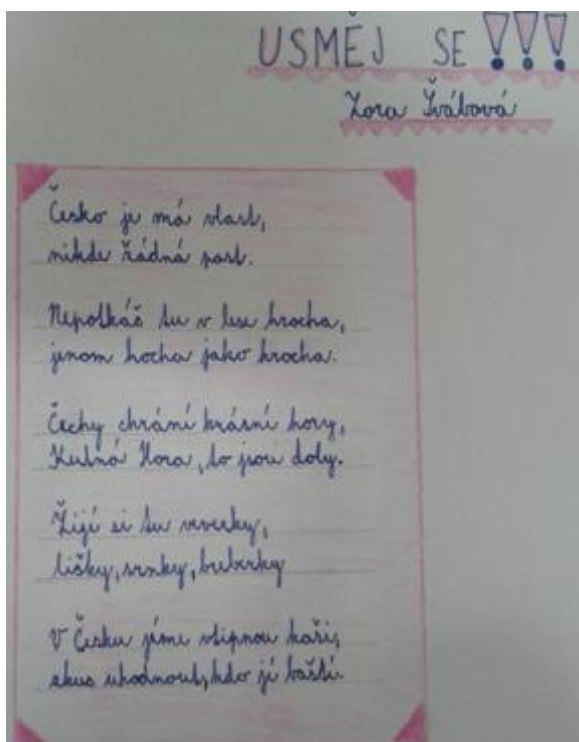 USMĚJ SE !!!
Zora Švábová
Česko je má vlast,
nikde řádná past.
Nepotkáš tu v lese hrocha,
jenom hocha jako hrocha.
Čechy chrání krásní hory,
Kutná Hora, to jsou doly.
Žijí si tu veverky,
lišky, srnky, beberky
V Česku jíme vtipnou kaši,
zkus uhodnout, kdo jí baští.